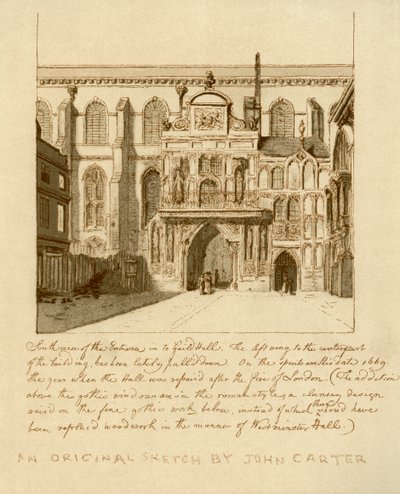 South view of the Entrance in to Guild Hall. The left wing to the centre part
of the building, has been lately pulled down. On the upside are this date 1669.
the year when the Hall was repair'd after the fire of London. (The addition
above the gothic windows are in the roman style & a clumsey design
on the fine gothic work below, instead of which they should have
been replac'd woodwork in the manner of Westminster Halls.)
AN ORIGINAL SKETCH BY JOHN CARTER